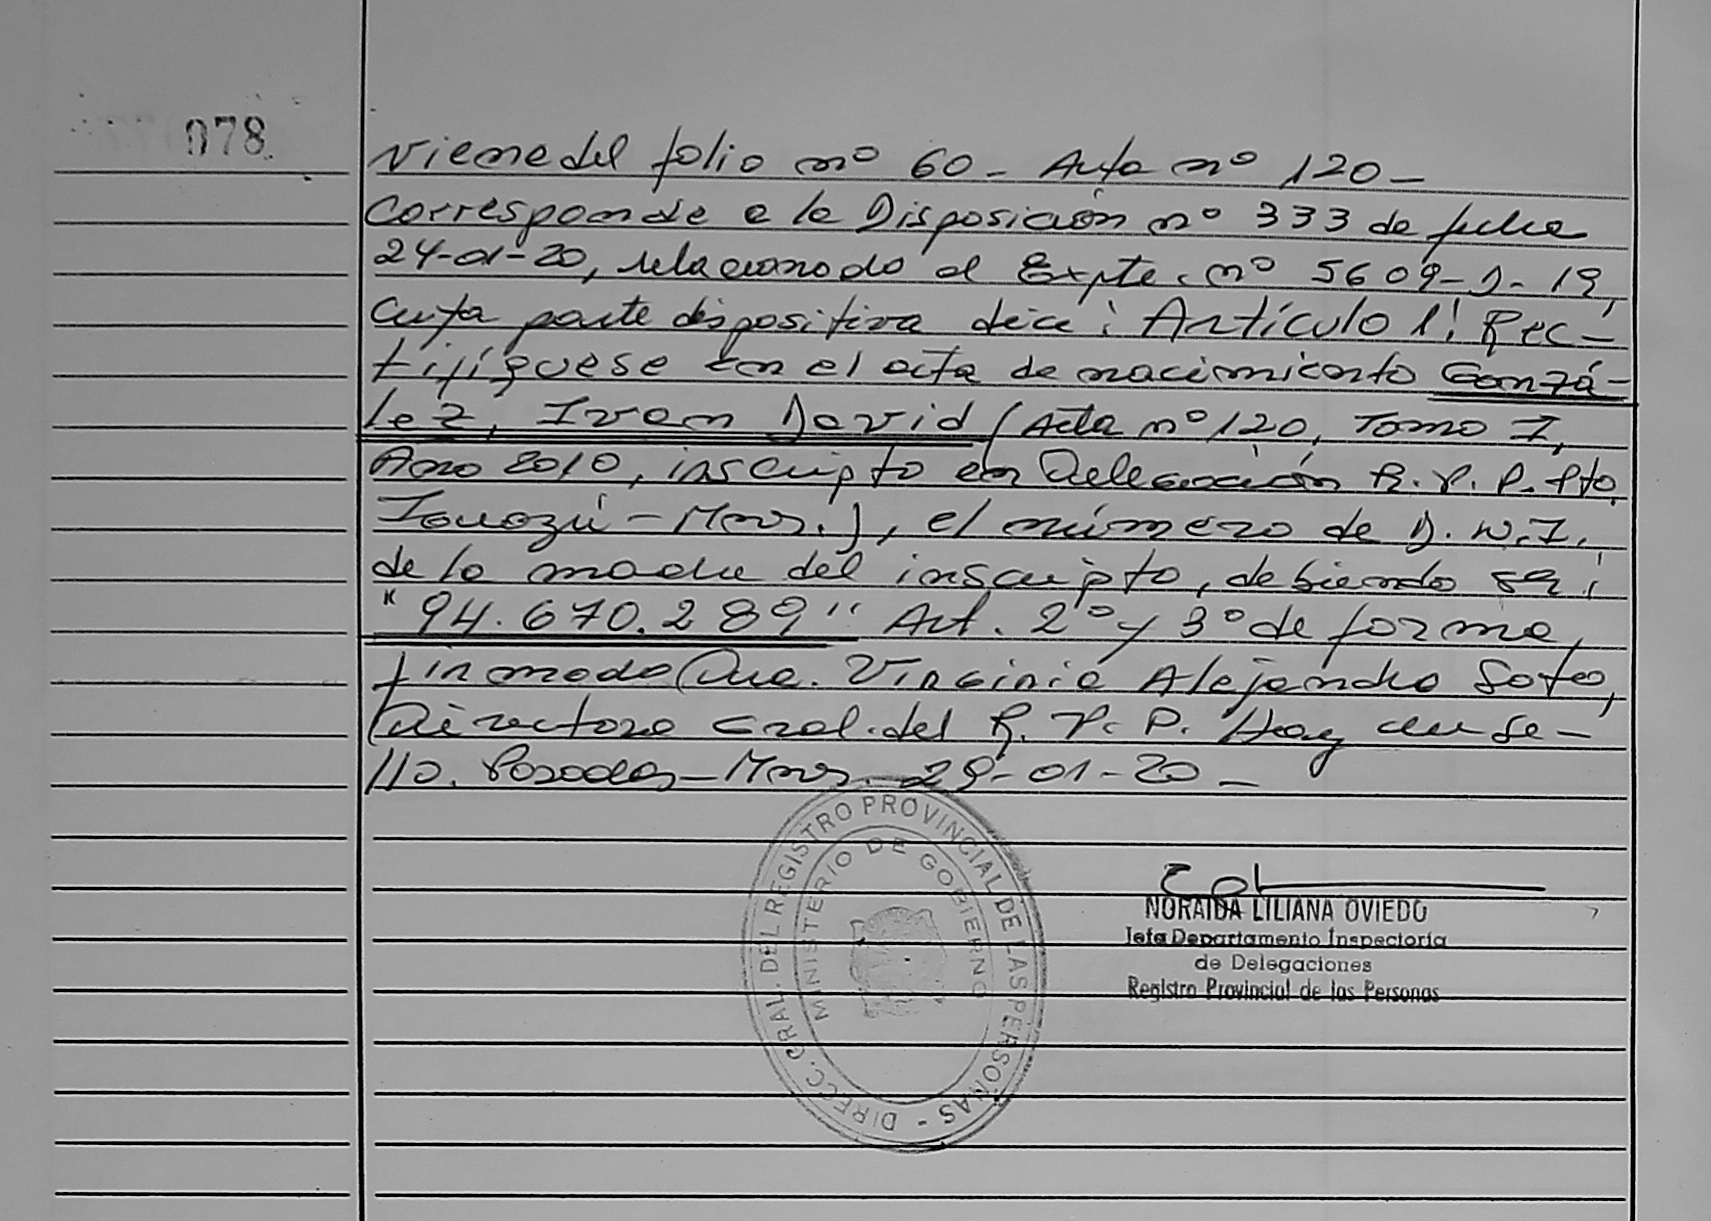 078
Viene del folio nº 60 - Acta nº 120 -
Corresponde a la Disposición nº 333 de fecha
24-01-20, relacionado al Expte. nº 5609-D-19,
cuya parte dispositiva dice: Artículo 1: Rec-
tifíquese en el acta de nacimiento Gonzá-
lez, Ivan David (Acta nº 120, Tomo I,
Año 2010, inscripto en Delegación R.P.P. Pto.
Iguazú - Mnes.), el número de D.N.I.
de la madre del inscripto, debiendo ser:
"94.670.289" Art. 2º y 3º de forma,
firmado Dra. Virginia Alejandra Soto,
Directora Gral. del R.P.P. Hay un se-
llo. Posadas - Mnes. 29-01-20 -
DIRECC. GRAL. DEL REGISTRO PROVINCIAL DE LAS PERSONAS -
MINISTERIO DE GOBIERNO
NORAIDA LILIANA OVIEDO
Jefa Departamento Inspectoría
de Delegaciones
Registro Provincial de las Personas